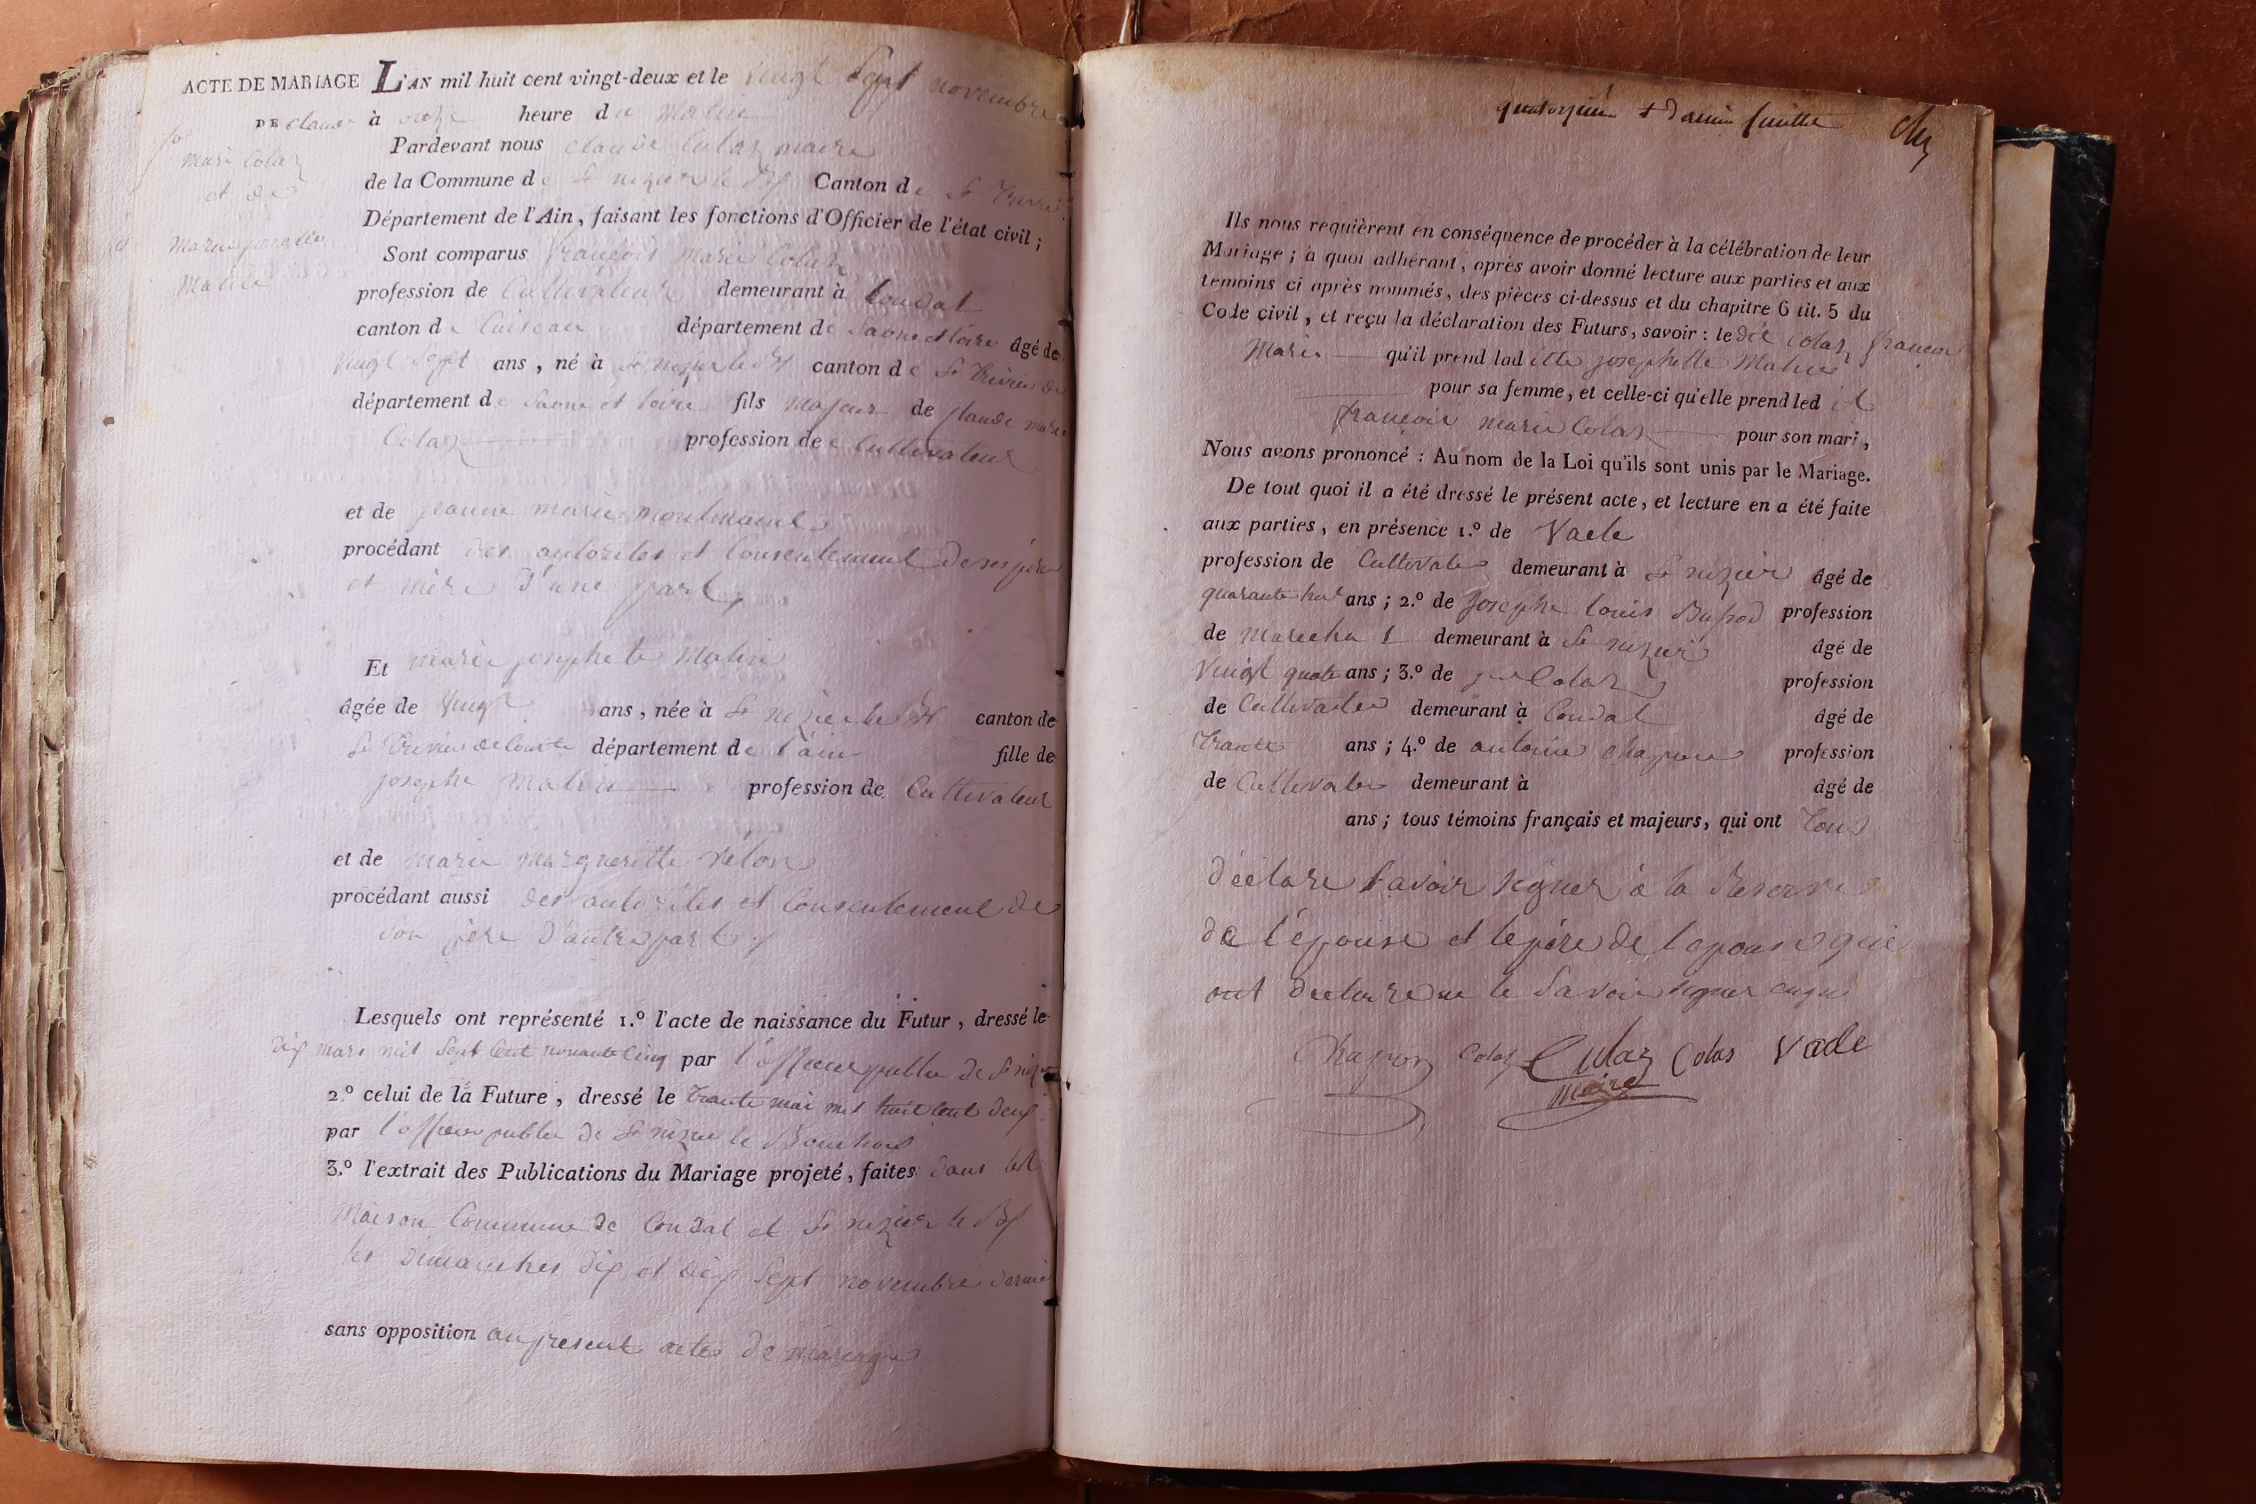 ACTE DE MARIAGE L'AN mil huit cent vingt-deux et le vingt sept novembre
DE Claude à heure du matin
Mari Colas
et de
Marie josephette
Matire
Pardevant nous Claude Culaz maire
de la Commune de St nizier le Bx Canton de St Trivier
Département de l'Ain, faisant les fonctions d'Officier de l'état civil;
Sont comparus françois Marie Colaz
profession de Cultivateur demeurant à Condat
canton de Cuiseau département de Saone et Loire âgé de
vingt Sept ans, né à St nizier le Bx canton de St Trivier de
département de Saone et Loire fils majeur de Claude marie
Colaz profession de Cultivateur
et de jeanne marie
procédant des autorites et Consentement de ses père
et mère d'une part
Et marie josephete Matire
âgée de vingt ans, née à St nizier le Bx canton de
St Trivier de Courte département de l'ain fille de
josephe Matire profession de Cultivateur
et de marie margueritte
procédant aussi des autorites et Consentement de
son père d'autre part
Lesquels ont représenté 1.º l'acte de naissance du Futur, dressé le
dix mars mil Sept Cent nonante Cinq par l'officier public de St nizier
2.º celui de la Future, dressé le Trante mai mil huit Cent deux
par l'officier public de St nizier le Bouchoux
3.º l'extrait des Publications du Mariage projeté, faites dans la
Maison Commune de Condat et St nizier le Bx
les dimanches dix et dix Sept novembre dernier
sans opposition au present acte de mariage
quatorzième feuille
Ils nous requièrent en conséquence de procéder à la célébration de leur
Mariage; à quoi adhérant, après avoir donné lecture aux parties et aux
temoins ci après nommés, des pièces ci-dessus et du chapitre 6 tit. 5 du
Code civil, et reçu la déclaration des Futurs, savoir: le dit Colaz françois
Marie qu'il prend ladite josephette Matire
pour sa femme, et celle-ci qu'elle prend ledit
françois marie Colaz pour son mari,
Nous avons prononcé: Au nom de la Loi qu'ils sont unis par le Mariage.
De tout quoi il a été dressé le présent acte, et lecture en a été faite
aux parties, en présence 1.º de Vaele
profession de Cultivateur demeurant à St nizier âgé de
quarante ans; 2.º de Josephe Louis profession
de Marechal demeurant à St nizier âgé de
Vingt quatre ans; 3.º de Colaz profession
de Cultivateur demeurant à Condat âgé de
Trante ans; 4.º de antoine Chapon profession
de Cultivateur demeurant à âgé de
ans; tous témoins français et majeurs, qui ont Tous
déclare Savoir signer à la Reserve
de l'épouse et le père de l'epouse qui
ont declare ne le Savoir signer
Chapon Colaz Culaz Colas Vaele
maire